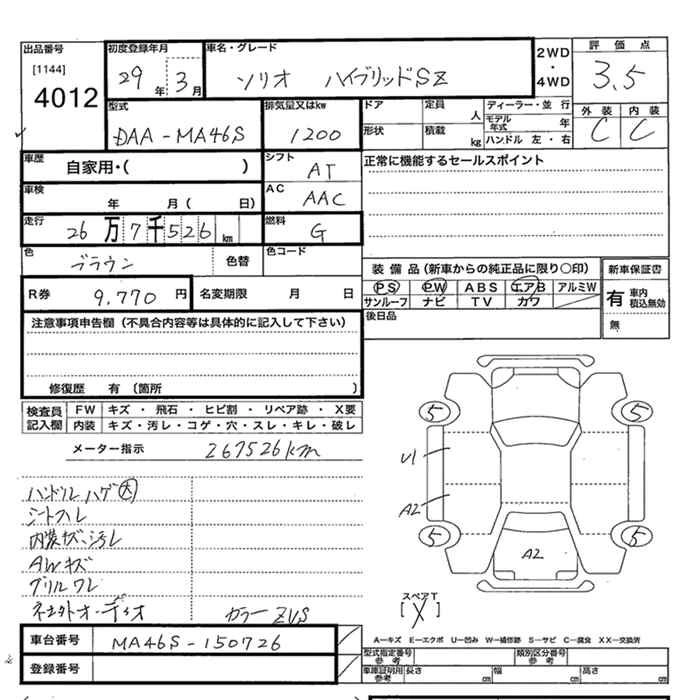 出品番号 初度登録年月 車名・グレード 2WD・4WD 評価点
[1144]
4012 29年 3月 ソリオ ハイブリッドSZ 3.5
型式 排気量又はkw ドア 定員 人 ディーラー・並行 外装 内装
DAA-MA46S 1200 形状 積載 kg モデル年式 年 C C
ハンドル 左・右
車歴 自家用・( ) シフト AT 正常に機能するセールスポイント
車検 年 月 ( 日) AC AAC
走行 26万7千526km 燃料 G
色 ブラウン 色替 色コード
装備品(新車からの純正品に限り○印) 新車保証書
R券 9,770円 名変期限 月 日 PS PW ABS エアB アルミW 有 車内 積込無効
サンルーフ ナビ TV カワ
注意事項申告欄(不具合内容等は具体的に記入して下さい) 後日品 無
修復歴 有 (箇所 )
検査員記入欄 FW キズ・飛石・ヒビ割・リペア跡・X要
内装 キズ・汚レ・コゲ・穴・スレ・キレ・破レ
メーター指示 267526km
ハンドルハゲ 大
シートスレ
内装キズ、汚レ
AWキズ
グリルワレ
カラー ZVS
5 5
U1
A2
5 5
A2
スペアT
[ X ]
A—キズ E—エクボ U—凹み W—補修跡 S—サビ C—腐食 XX—交換済
車台番号 MA46S-150726 型式指定番号 参考 類別区分番号 参考
登録番号 車庫証明用 参考 長さ cm 幅 cm 高さ cm